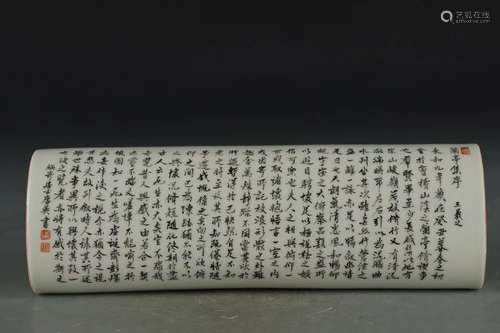 艺狐在线
蘭亭集序 王羲之
永和九年歲在癸丑暮春之初
會於會稽山陰之蘭亭修禊事
也群賢畢至少長咸集此地有
崇山峻嶺茂林修竹又有清流
激湍映帶左右引以為流觴曲
水列坐其次雖無絲竹管弦之
盛一觴一詠亦足以暢敘幽情
是日也天朗氣清惠風和暢仰
觀宇宙之大俯察品類之盛所
以遊目騁懷足以極視聽之娛
信可樂也夫人之相與俯仰一
世或取諸懷抱悟言一室之內
或因寄所託放浪形骸之外雖
趣舍萬殊靜躁不同當其欣於
所遇暫得於己快然自足不知
老之將至及其所之既倦情隨
事遷感慨係之矣向之所欣俯
仰之間已為陳跡猶不能不以
之興懷況修短隨化終期於盡
古人云死生亦大矣豈不痛哉
每覽昔人興感之由若合一契
未嘗不臨文嗟悼不能喻之於
懷固知一死生為虛誕齊彭殤
為妄作後之視今亦猶今之視
昔悲夫故列敘時人錄其所述
雖世殊事異所以興懷其致一
也後之覽者亦將有感於斯文
唐英書